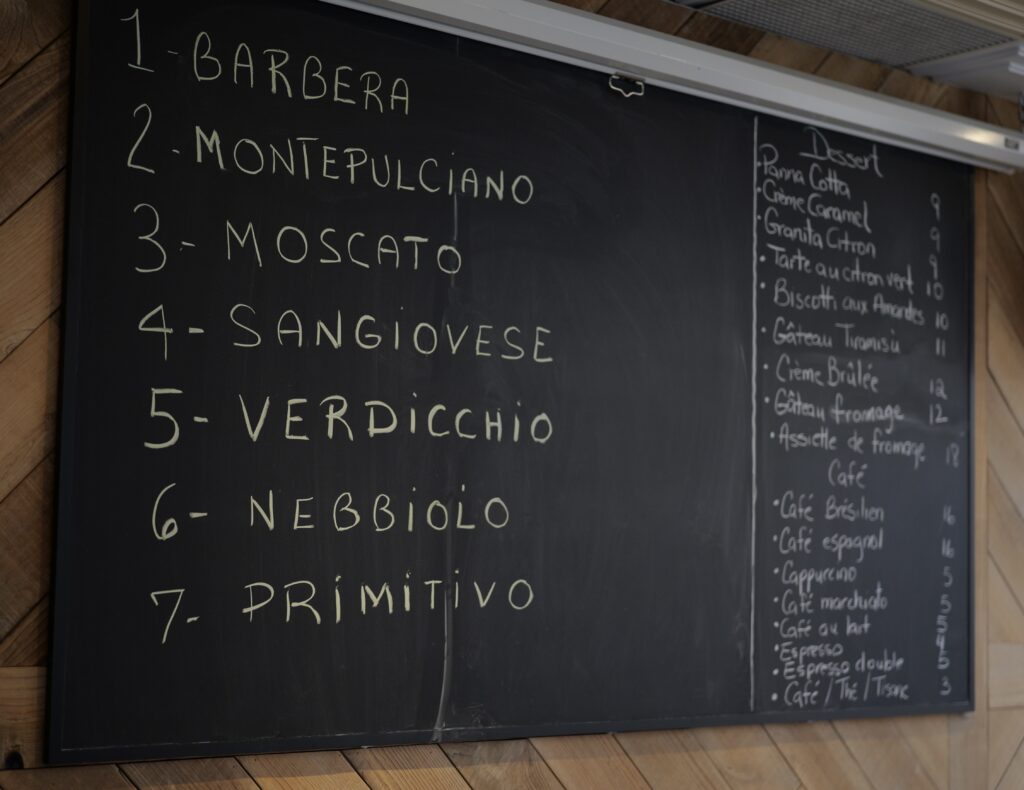 1- BARBERA
2- MONTEPULCIANO
3- MOSCATO
4- SANGIOVESE
5- VERDICCHIO
6- NEBBIOLO
7- PRIMITIVO
Dessert
• Panna Cotta 9
• Crème Caramel 9
• Granita Citron 9
• Tarte au citron vert 10
• Biscotti aux Amandes 10
• Gâteau Tiramisù 11
• Crème Brûlée 12
• Gâteau fromage 12
• Assiette de fromage 18
Café
• Café Brésilien 16
• Café espagnol 16
• Cappuccino 5
• Café marchiato 5
• Café au lait 5
• Espresso 4
• Espresso double 5
• Café / Thé / Tisane 3